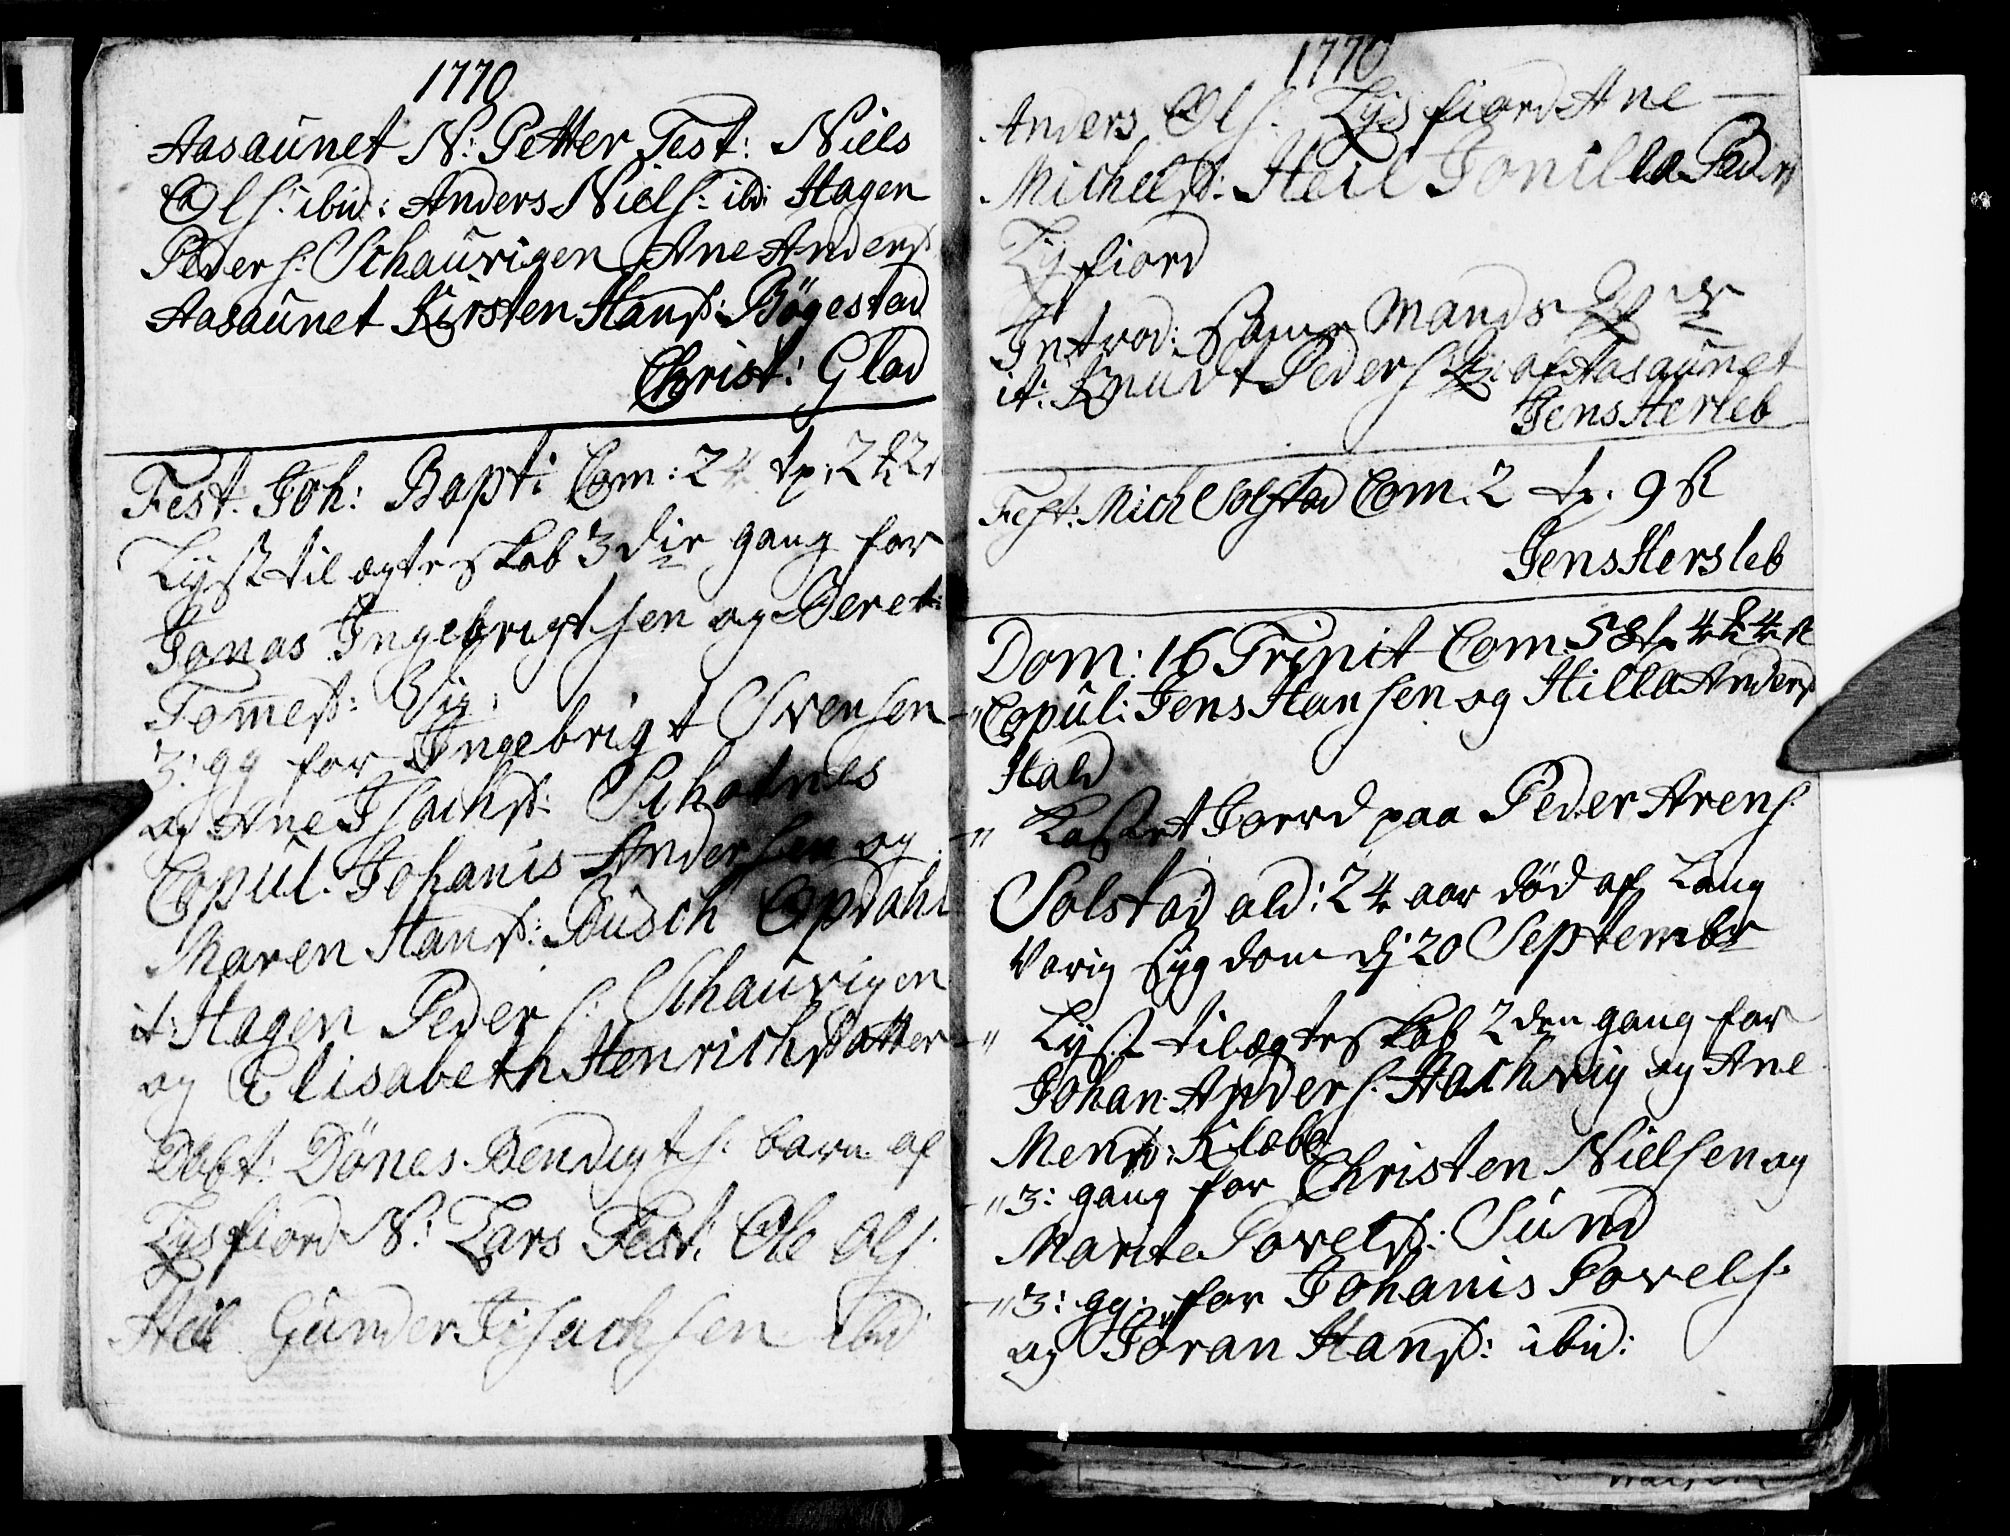 1770
Aasaunet N: Petter Test: Niels
Ols: ibid: Anders Niels: ibd: Hagen
Peders: Schaurigen Ane Anders
Aasaunet Kirsten Hansd: Bögestad
Christ: Glad
Fest: Joh: Bapti Com: 24 tp:
Lyst til ægteskab 3die gang for
Jonas Ingebrigtsen og Beret:
Tomesd: Vig:
3: gg for Ingebrigt Svensen
og Ane Isachsd: Schotnes
Copul: Johanis Andersen og
Maren Hansd: Busch Opdahl
it: Hagen Peders: Schaurigen
og Elisabeth Henrichsdatter
Döbt: Dönes Bendigts: barn af
Lysfiord N: Lars Test: Ole Ols:
Heil Gunder Isachsen ibid:
1770
Anders Ols: Lysfiord Ane
Michelsd: Heil Jonilla Peders
Lysfiord
Introd: samme Mands
it: Knudt Peders: K: af Aasaunet
Jens Hersleb
Fest: Mich Solstad Com: 2 tp. 9 ß
Jens Hersleb
Dom: 16 Trinit Com 58
" Copul: Jens Hansen og Hilla Anders
Hald
" Kastet Jord paa Peder Arens:
Solstad ald: 24 aar död af Lang
Varig sygdom dj 20 Septembr
" Lyst til ægteskab 2den gang for
Johan Anders: Hachvig og Ane
Mensd: Klæbo
" 3: gang for Christen Nielsen og
Marite Povelsd: Sund
" 3: gg: for Johanis Povels:
og Jöran Hansd: ibid: